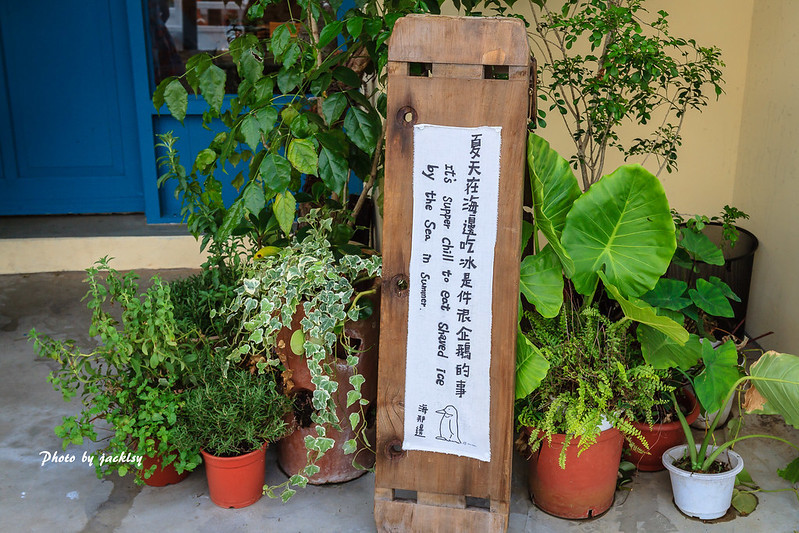 夏天在海邊吃冰是件很企鵝的事
It's supper chill to eat shaved ice
by the sea in summer.
海那邊
Photo by jacklsy